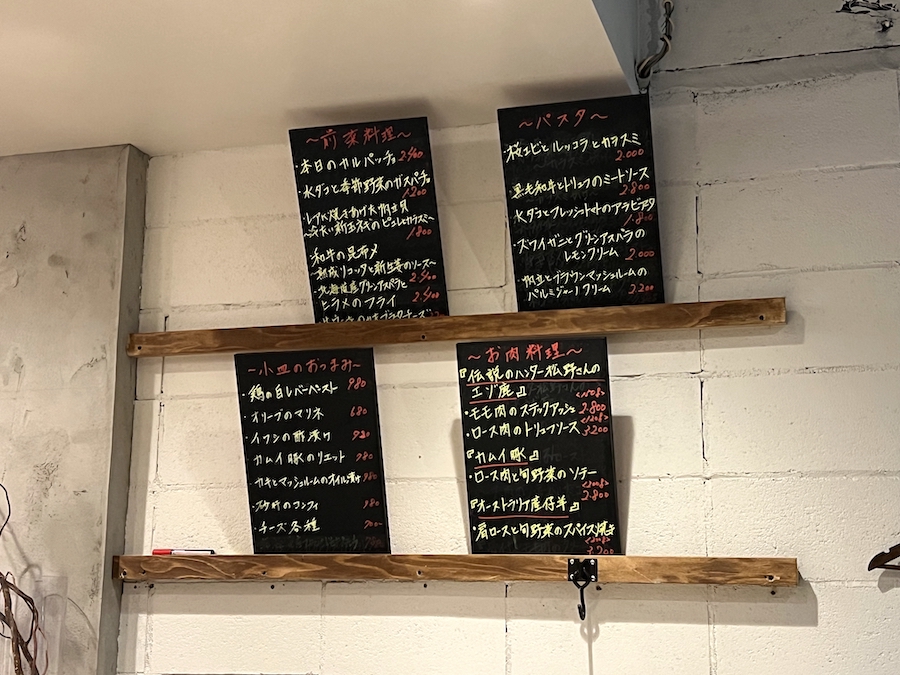 ～前菜料理～
・本日のカルパッチョ 2.400
・水ダコと季節野菜のガスパチョ
1.200
・レアに焼きあげた帆立貝
～冷たい新玉ネギのピュレとカラスミ～
1.800
和牛の昆布〆
熟成リコッタと新生姜のソース～
2.400
・北海道産グリーンアスパラと
ヒラメのフライ 2.400
～パスタ～
・桜エビとルッコラとカラスミ
2.000
黒毛和牛とトリュフのミートソース
2.800
水ダコとフレッシュトマトのアラビアタ
1.800
・ズワイガニとグリーンアスパラの
レモンクリーム 2.000
・帆立とブラウンマッシュルームの
パルミジャーノクリーム 2.200
～小皿のおつまみ～
・鶏の白レバーペースト 980
・オリーブのマリネ 680
・イワシの酢漬け 980
カムイ豚のリエット 980
・カキとマッシュルームのオイル漬け 980
・砂肝のコンフィ 980
・チーズ各種 700～
～お肉料理～
『伝説のハンター松野さんの
エゾ鹿』
・モモ肉のステックアッシェ 2.800
・ロース肉のトリュフソース 3.200
『カムイ豚』
・ロース肉と旬野菜のソテー
2.800
『オーストラリア産仔羊』
・肩ロースと旬野菜のスパイス焼き
3.200